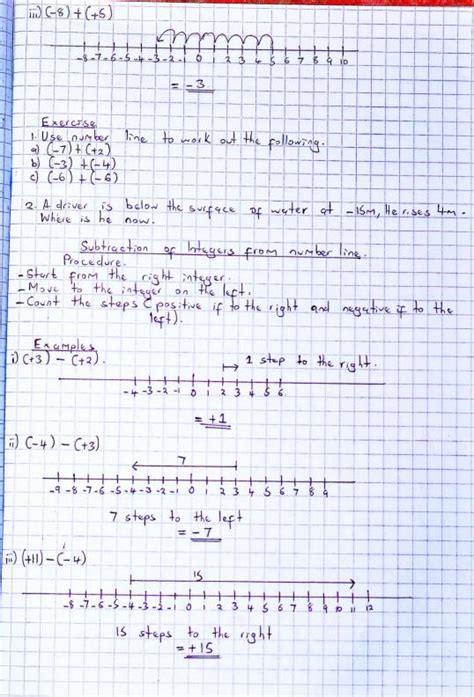 iii) (-8) + (+5)
-8 -7 -6 -5 -4 -3 -2 -1 0 1 2 3 4 5 6 7 8 9 10
= -3
Exercise
1. Use number line to work out the following.
a) (-7) + (+2)
b) (-3) + (-4)
c) (-6) + (-6)
2. A driver is below the surface of water at -15m, He rises 4m.
Where is he now.
Subtraction of Integers from number line.
Procedure.
- Start from the right integer.
- Move to the integer on the left.
- Count the steps (positive if to the right and negative if to the
left).
Examples
i) (+3) - (+2).
1 step to the right.
-4 -3 -2 -1 0 1 2 3 4 5 6
= +1
ii) (-4) - (+3)
7
-9 -8 -7 -6 -5 -4 -3 -2 -1 0 1 2 3 4 5 6 7 8 9
7 steps to the left
= -7
iii) (+11) - (-4)
15
-8 -7 -6 -5 -4 -3 -2 -1 0 1 2 3 4 5 6 7 8 9 10 11 12
15 steps to the right
= +15